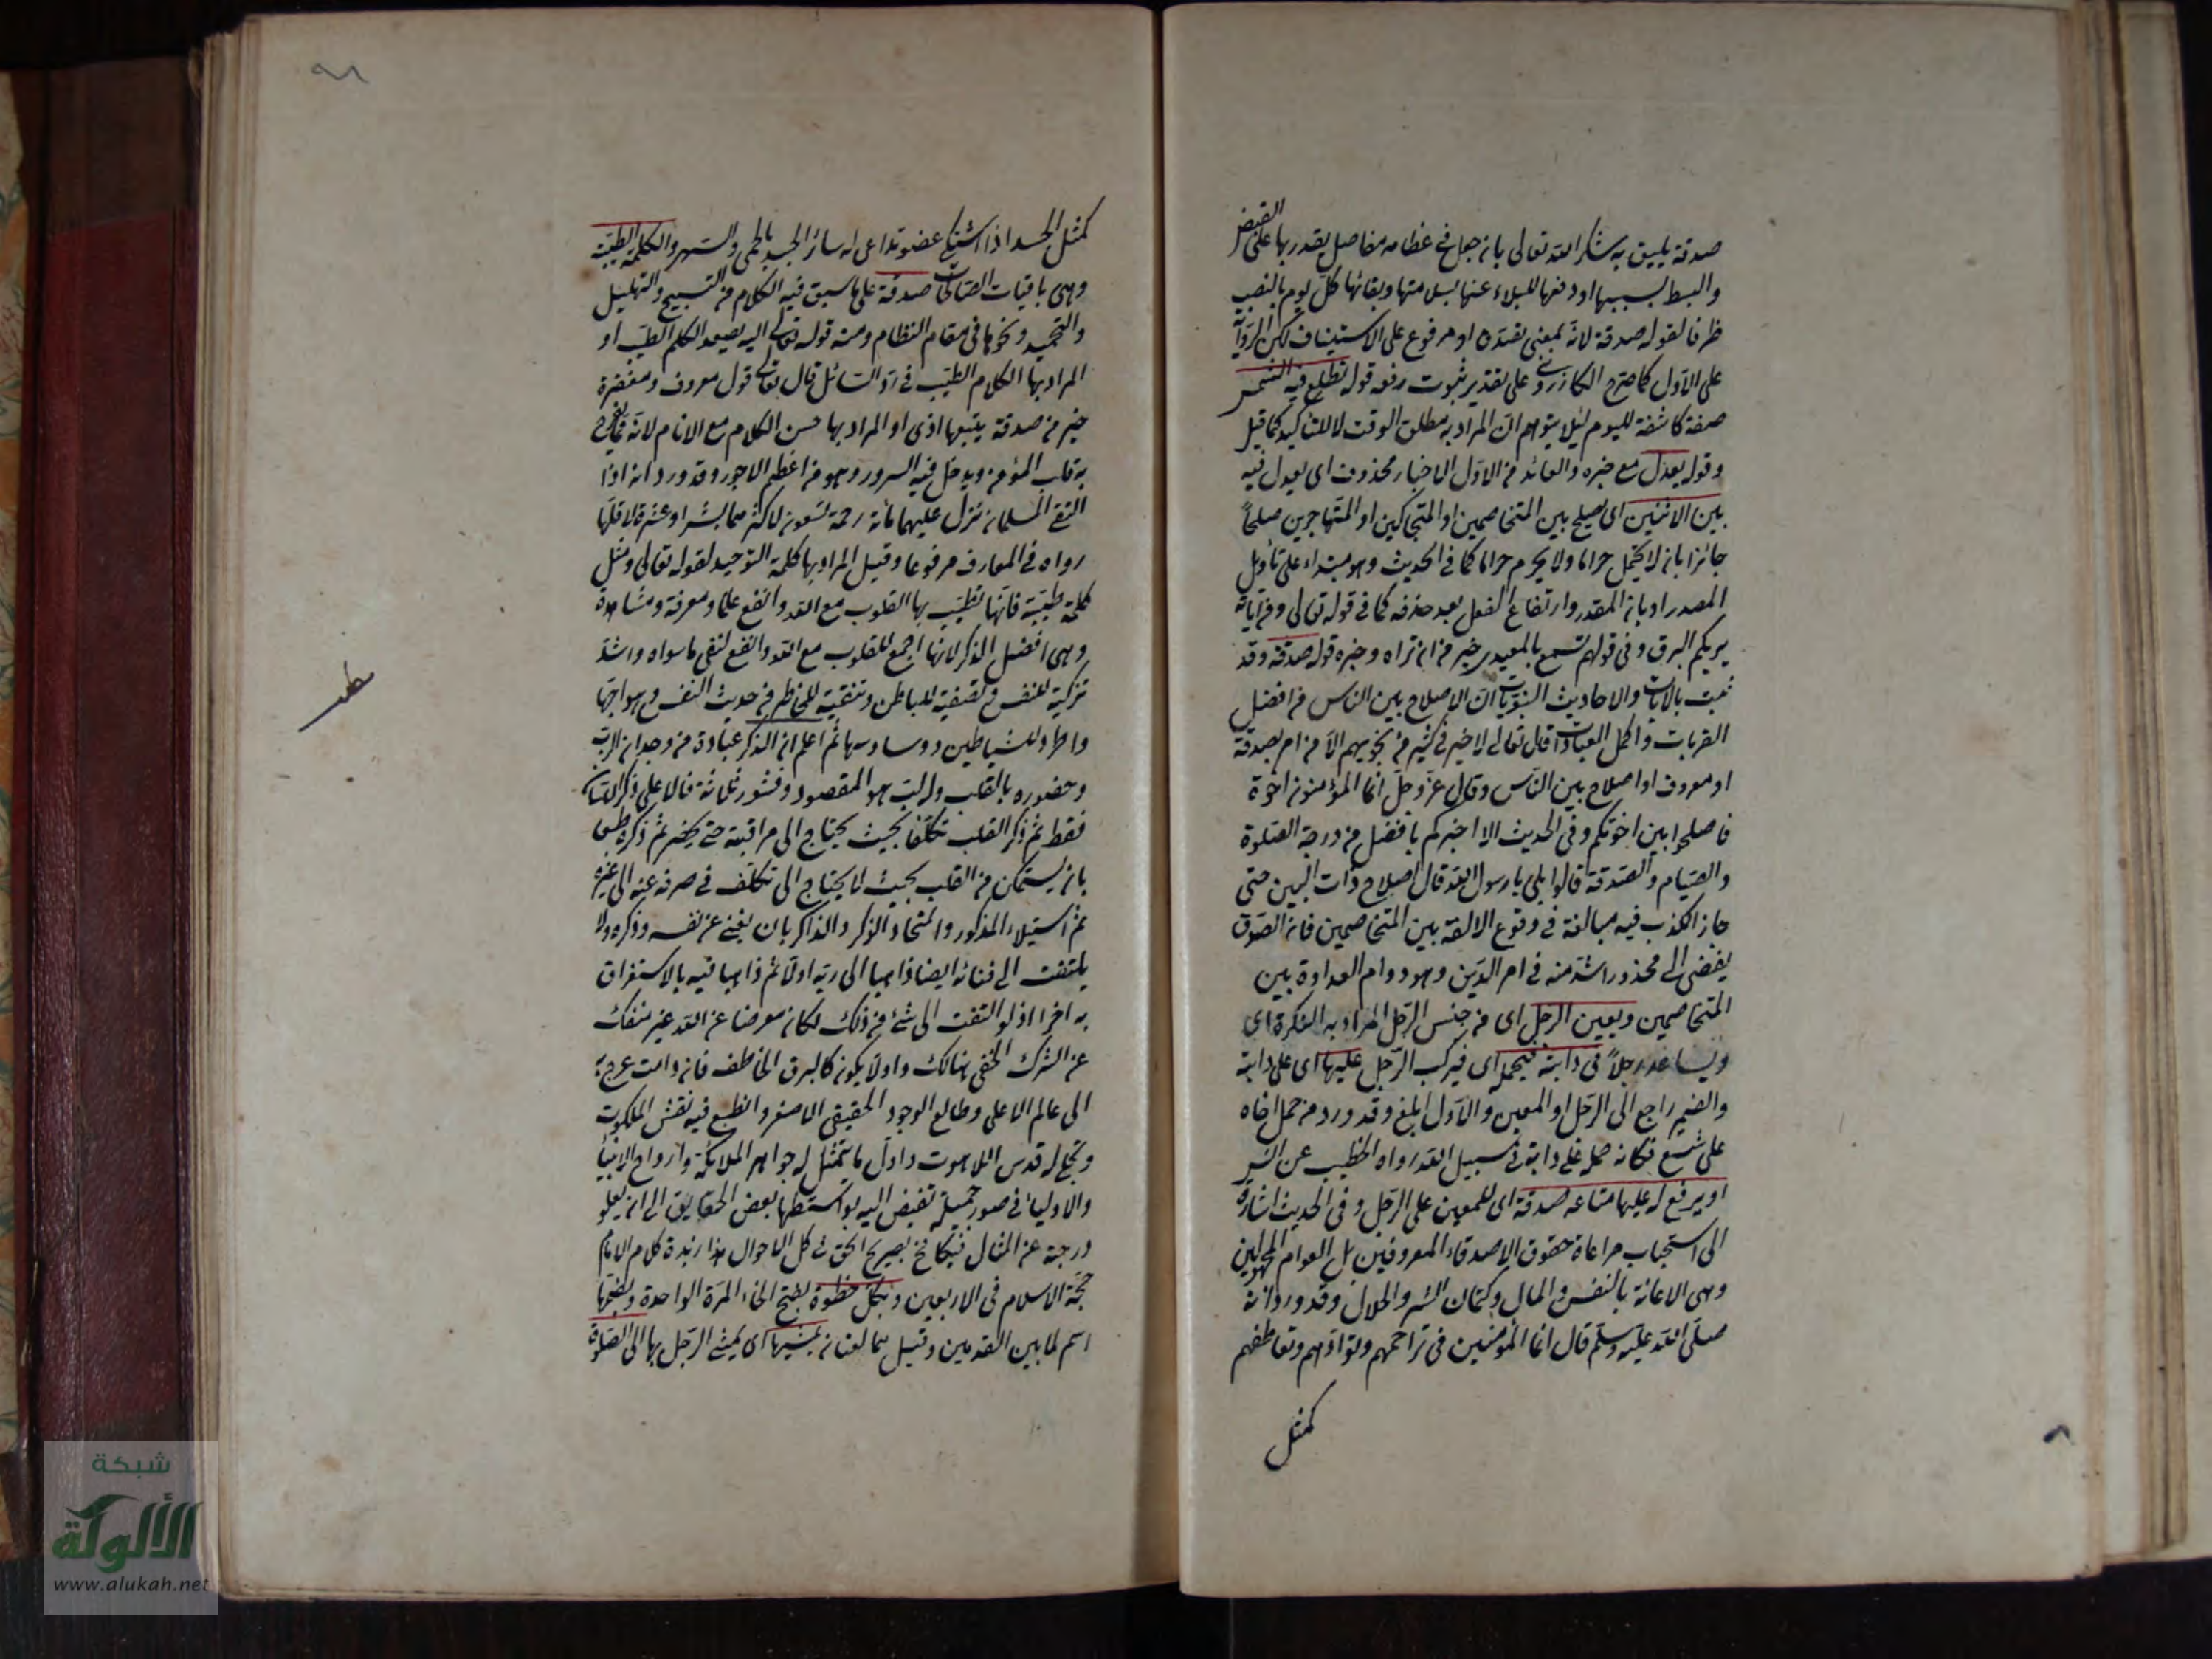 صدقة يليق به شكر الله تعالى بان جعل في عظامه مفاصل يقدر بها على القبض
والبسط بسببها او دفعها للبلاء عنها بسلامتها وبقائها كل يوم بالنصب
ظرفا لقوله صدقة لانه بمعنى او مرفوع على الاستيناف لكن الرواية
على الاول كما صرح الكازروني على تقدير ثبوت رفعه قوله تطلع فيه الشمس
صفة كاشفة لليوم لئلا يتوهم ان المراد به مطلق الوقت لا للتاكيد كما قيل
وقوله يعدل مع خبره والعائد من الاول الاخبار محذوف اى يعدل فيه
بين الاثنين اى يصلح بين المتخاصمين او المتحاكمين او المتهاجرين صلحاً
جائزا بان لا يحل حراما ولا يحرم حلالا كما في الحديث وهو مبتداء على تأويل
المصدر او بان المقدر وارتفاع الفعل بعد حذفه كما في قوله تعالى ومن آياته
يريكم البرق وفي قولهم تسمع بالمعيدى خير من ان تراه وخبره قوله صدقة وقد
ثبت بالايات والاحاديث النبويات ان الاصلاح بين الناس من افضل
القربات واكمل العبادات قال تعالى لا خير في كثير من نجويهم الا من امر بصدقة
او معروف او اصلاح بين الناس وقال عز وجل انما المؤمنون اخوة
فاصلحوا بين اخوتكم وفى الحديث الا اخبركم بافضل من درجة الصلوة
والصيام والصدقة قالوا بلى يا رسول الله قال اصلاح ذات البين حتى
جاز الكذب فيه مبالغة في وقوع الالفة بين المتخاصمين فان الصدق
يفضى الى محذور اشد منه في امر الدين وهو دوام العداوة بين
المتخاصمين ويعين الرجل اى من جنس الرجل المراد به النكرة اى
ويساعد رجلاً فى دابته فيحمله اى فيركب الرجل عليها اى على دابته
والضمير راجع الى الرجل او المعين والاول ابلغ وقد ورد من حمل اخاه
على شسع فكانه حمله على دابة في سبيل الله رواه الخطيب عن انس
او يرفع له عليها متاعه صدقة اى للمعين على الرجل وفى الحديث اشارة
الى استحباب مراعاة حقوق الاصدقاء المعروفين بل العوام المجهولين
وهى الاعانة بالنفس والمال وكتمان السر والحلال وقد ورد انه
صلى الله عليه وسلم قال انما المؤمنين فى تراحمهم وتوادهم وتعاطفهم
كمثل
٩٨
كمثل الجسد اذا اشتكى عضو تداعى له سائر الجسد بالحمى والسهر والكلمة الطيبة
وهى باقيات الصالحات صدقة على ما سبق فيه الكلام من التسبيح والتهليل
والتحميد ونحوها فى مقام النظام ومنه قوله تعالى اليه يصعد الكلم الطيب او
المراد بها الكلام الطيب في رد السائل قال تعالى قول معروف ومغفرة
خير من صدقة يتبعها اذى او المراد بها حسن الكلام مع الانام لانه مما يفرح
به قلب المؤمن ويدخل فيه السرور وهو من اعظم الاجور وقد ورد انه اذا
التقى المسلمان تنزل عليهما مائة رحمة تسعون لاكثرهما بشرا وعشرة لاقلهما
رواه في المعارف مرفوعا وقيل المراد بها كلمة التوحيد لقوله تعالى ومثل
كلمة طيبة فانها تطيب بها القلوب مع الله وانفع علما ومعرفة ومشاهدة
وهى افضل الذكر لانها اجمع للقلوب مع الله وانفع لنفى ما سواه واشد
تزكية للنفس وتصفية للباطن وتنقية للخاطر من حديث النفس وهواجسها
واطرد للشياطين ووساوسها ثم اعلم ان الذكر عبادة من وجدان الرب
وحضوره بالقلب وله لب هو المقصود وقشور ثلاثة فالاعلى ذكر اللسان
فقط ثم ذكر القلب تكلفا بحيث يحتاج الى مراقبة حتى يحضر ثم ذكره طبعا
بان يستمكن من القلب بحيث لا يحتاج الى تكلف في صرفه عنه الى غيره
ثم استيلاء المذكور واتحاد الذكر والذاكر بان يفنى عن نفسه وذكره ولا
يلتفت الى فنائه ايضا ذاهبا الى ربه اولا ثم ذاهبا فيه بالاستغراق
به اخرا اذ لو التفت الى شئ من ذلك لكان معرضا عن الله غير منفك
عن الشرك الخفى هنالك واولا يكون كالبرق الخاطف فان دامت عرج به
الى عالم الاعلى وطالع الوجود الحقيقى الاصفر وانطبع فيه نقش الملكوت
وتجلى له قدس اللاهوت واول ما يتمثل له جواهر الملائكة وارواح الانبيا
والاوليا في صور جميلة تفيض اليه بواسطتها بعض الحقايق الى ان يعلو
درجة عن المثال فيكافح بصريح الحق في كل الاحوال هذا زبدة كلام الامام
حجة الاسلام فى الاربعين وبكل خطوة بفتح الخاء المرة الواحدة وبضمها
اسم لما بين القدمين وقيل هما لغتان يمشيها اى يمشى الرجل بها الى الصلوة
شبكة
الألوكة
www.alukah.net